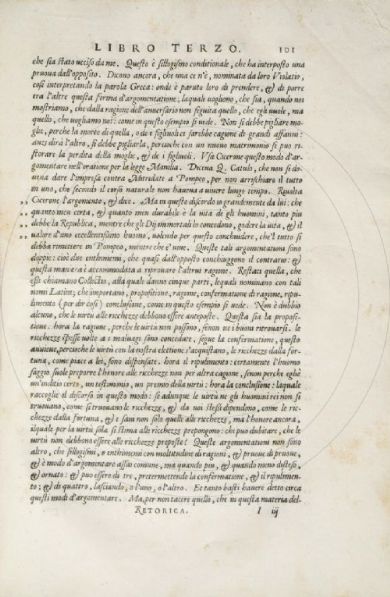 LIBRO TERZO. 101
che sia stato ucciso da me. Questo è sillogismo conditionale, che ha interposto una
pruova dall'opposito. Dicono ancora, che una ce n'è, nominata da loro Violatio,
così interpretando la parola Greca: onde è parato loro di prendere, & di porre
tra l'altre questa forma d'argomentatione; la quale vogliono, che sia, quando noi
mostriamo, che dalla ragione dell'aversario non seguita quello, che egli vuole, ma
quello, che vogliamo noi: come in questo esempio si vede. Non si debbe pigliare mo-
glie, perche la morte di quella, o de i figliuoli ci sarebbe cagione di grandi affanni:
anzi dirà l'altro, si debbe pigliarla, percioche con un nuovo matrimonio si può re-
storare la perdita della moglie, & de i figliuoli. Usa Cicerone questo modo d'ar-
gomentare nell'oratione per la legge Manilia. Diceva Q. Catulo, che non si do-
veva dare l'impresa contra Mitridate à Pompeo, per non arrischiare il tutto
in uno, che secondo il corso naturale non haveva à vivere lungo tempo. Rivolta
Cicerone l'argomento, & dice. Ma in questo discordo io grandemente da lui: che
quanto men certa, & quanto men durabile è la vita de gli huomini, tanto più
debbe la Republica, mentre che gli Dij immortali le concedono, godere la vita, & il
valore d'uno eccellentissimo huomo, volendo per questo conchiudere, che'l tutto si
debba rimettere in Pompeo, mentre che è vivo. Queste tali argomentationi sono
doppie: cioè due enthimemi, che quasi dall'opposito conchiuggono il contrario: &
questa maniera è accommodata à riprovare l'altrui ragione. Restaci quella, che
essi chiamano Collectio, alla quale danno cinque parti, le quali nominano con tali
nomi Latini; che importano, propositione, ragione, confermatione di ragione, ripu-
limento (per dir così) conclusione, come in questo esempio si vede. Non è dubbio
alcuno, che le virtù alle ricchezze debbono essere anteposte. Questa sia la proposi-
tione: hora la ragione, perche le virtù non possono, senon ne i buoni ritrovarsi. le
ricchezze spesse volte a i malvagi sono concedute, segue la confermatione, questo
avviene, percioche le virtù con la nostra elettione s'acquistano, le ricchezze dalla for-
tuna, come piace a lei, sono dispensate. hora il ripulimento: certamente l'huomo
saggio suole preporre l'honore alle ricchezze non per altra cagione, senon perche egli è
un'inditio certo, un testimonio, un premio della virtù: hora la conclusione: la quale
raccoglie il discorso in questo modo: se adunque le virtù ne gli huomini rei non si
truovano, come si truovano le ricchezze, & da noi stessi dependono, come le ric-
chezze dalla fortuna, & i savi non solo quelle alle ricchezze, ma l'honore ancora,
il quale per la virtù sola si stima alle ricchezze prepongono: chi può dubitare, che le
virtù non debbono essere alle ricchezze preposte? Queste argomentationi non sono
altro, che sillogismi, o enthimemi con moltitudine di ragioni, & pruove di pruove,
& è modo d'argomentare assai comune, ma quando più, & quando meno disteso,
& ornato: & può essere di tre, pretermettendo la confermatione, & il ripulimen-
to; & di quattro, lasciando, o l'uno, o l'altro. Et tanto basti havere detto circa
questi modi d'argomentare. Ma, per non tacere quello, che in questa materia del-
RETORICA. I iij